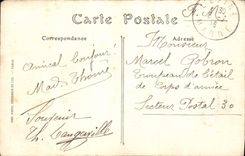 Carte Postale
F. M.
Correspondance
Adresse
Amical bonjour!
Mad Thomé
Souvenir
Monsieur
Marcel Gobron
Troupeau de bétail
de Corps d'armée
Secteur Postal 30